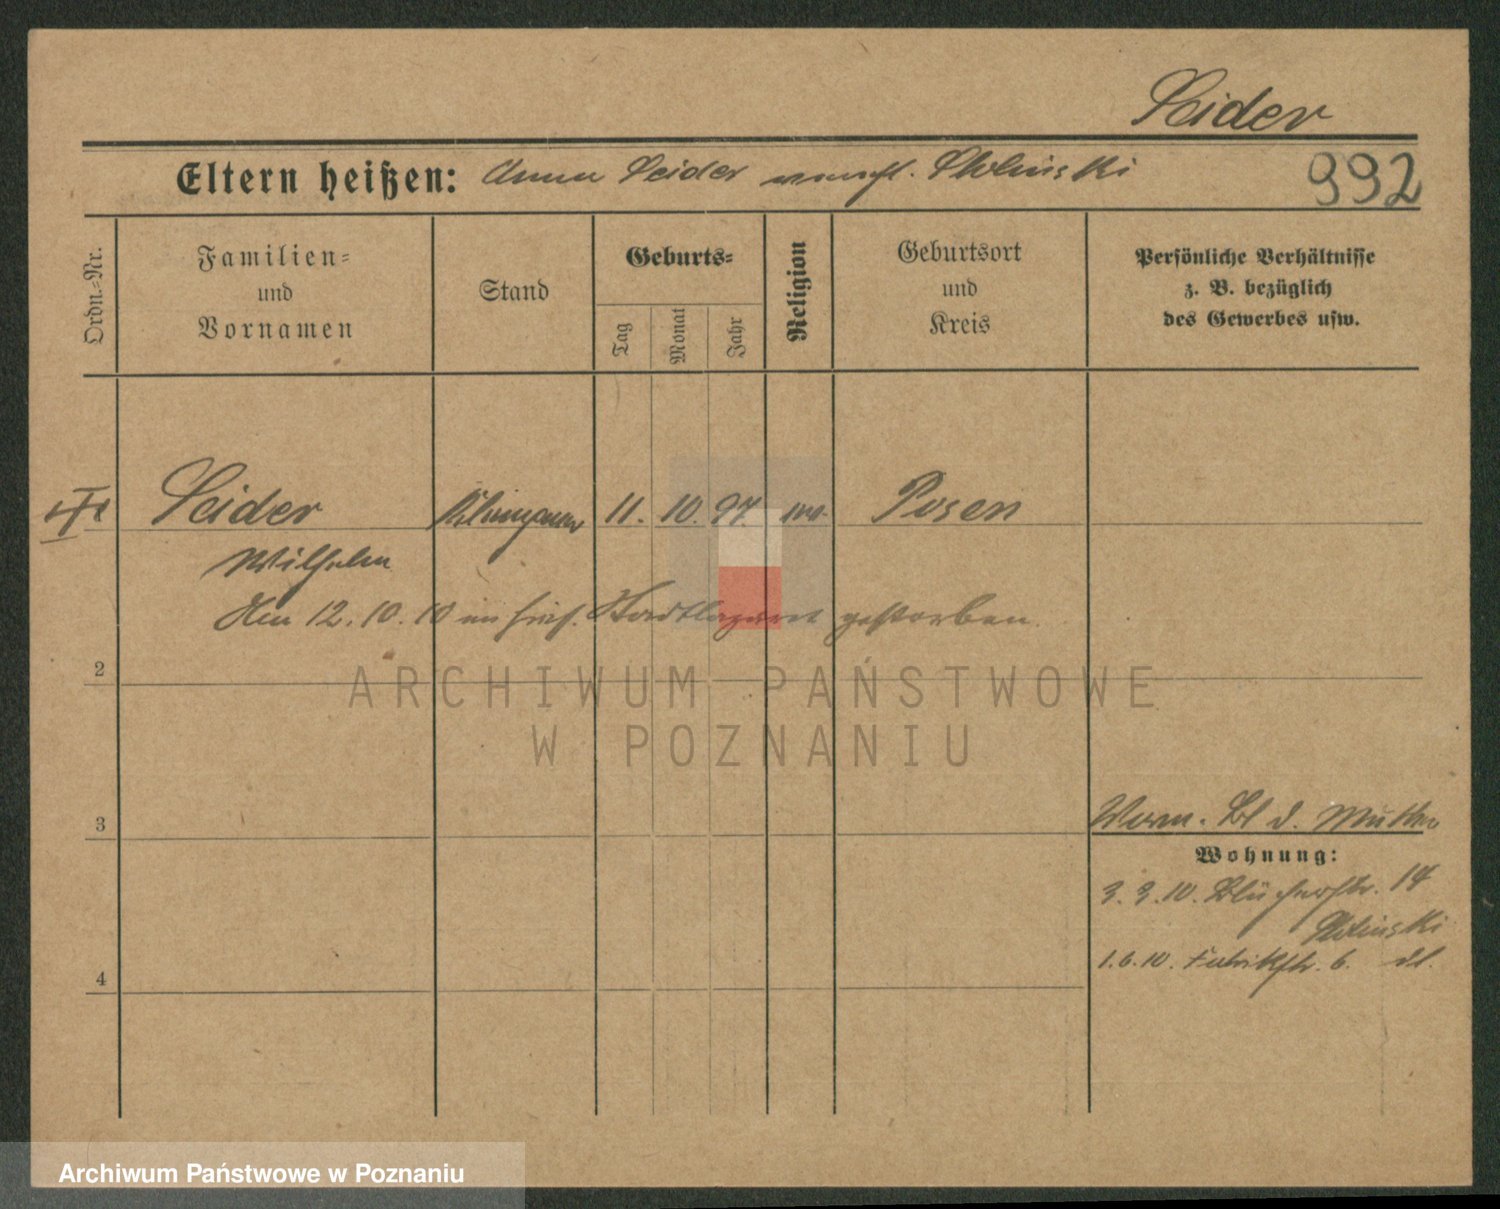 Seider
Eltern heißen: Anna Seider verehl. Skolinski
992
Ordn.-Nr.
Familien-
und
Vornamen
Stand
Geburts-
Tag
Monat
Jahr
Religion
Geburtsort
und
Kreis
Persönliche Verhältnisse
z. B. bezüglich
des Gewerbes usw.
Seider 11. 10. 97. Posen
Wilhelm
Am 12. 10. 10 im hies. Stadtlazaret gestorben.
2
ARCHIWUM PAŃSTWOWE
W POZNANIU
3
Verm. Bl d. Mutter
Wohnung:
3. 3. 10. Blücherstr. 14
1. 6. 10. Fabrikstr. 6.
4
Archiwum Państwowe w Poznaniu